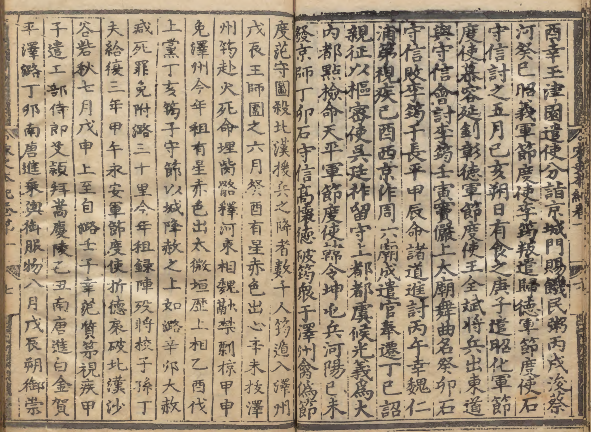 酉幸玉津園遣使分詣京城門賜饑民粥丙戌浚蔡
河癸巳昭義軍節度使李筠叛遣歸德軍節度使石
守信討之五月己亥朔日有食之庚子遣昭化軍節
度使慕容延釗彰德軍節度使王全斌將兵出東道
與守信會討李筠壬寅竇儼上太廟舞曲名癸卯石
守信敗李筠于長平甲辰命諸道進討丙午幸魏仁
浦第視疾己酉西京作周六廟成遣官奉遷丁巳詔
親征以樞密使吳廷祚留守上都都虞候光義為大
內都點檢命天平軍節度使韓令坤屯兵河陽己未
發京師丁卯石守信高懷德破筠眾于澤州禽偽節
度范守圖殺北漢援兵之降者數千人筠遁入澤州
戊辰王師圍之六月癸酉有星赤色出心辛未拔澤
州筠赴火死命埋胔骼釋河東相衛融禁剽掠甲申
免澤州今年租有星赤色出太微垣歷上相乙酉伐
上黨丁亥筠子守節以城降赦之上如潞辛卯大赦
減死罪免附潞三十里今年租錄陣歿將校子孫丁
夫給復三年甲午永安軍節度使折德扆破北漢沙
谷砦秋七月戊申上至自潞壬子幸范質第視疾甲
子遣工部侍郎艾穎拜嵩慶陵乙丑南唐進白金賀
平澤潞丁卯南唐進乘輿御服物八月戊辰朔御崇